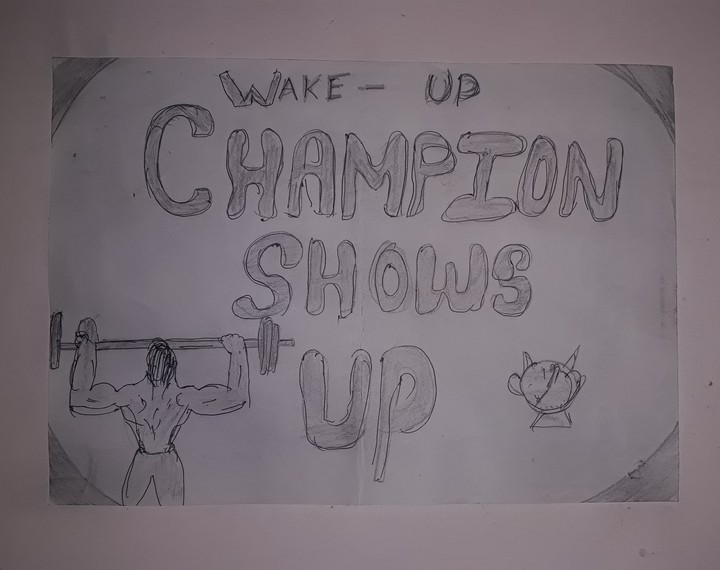 WAKE - UP
CHAMPION
SHOWS
UP